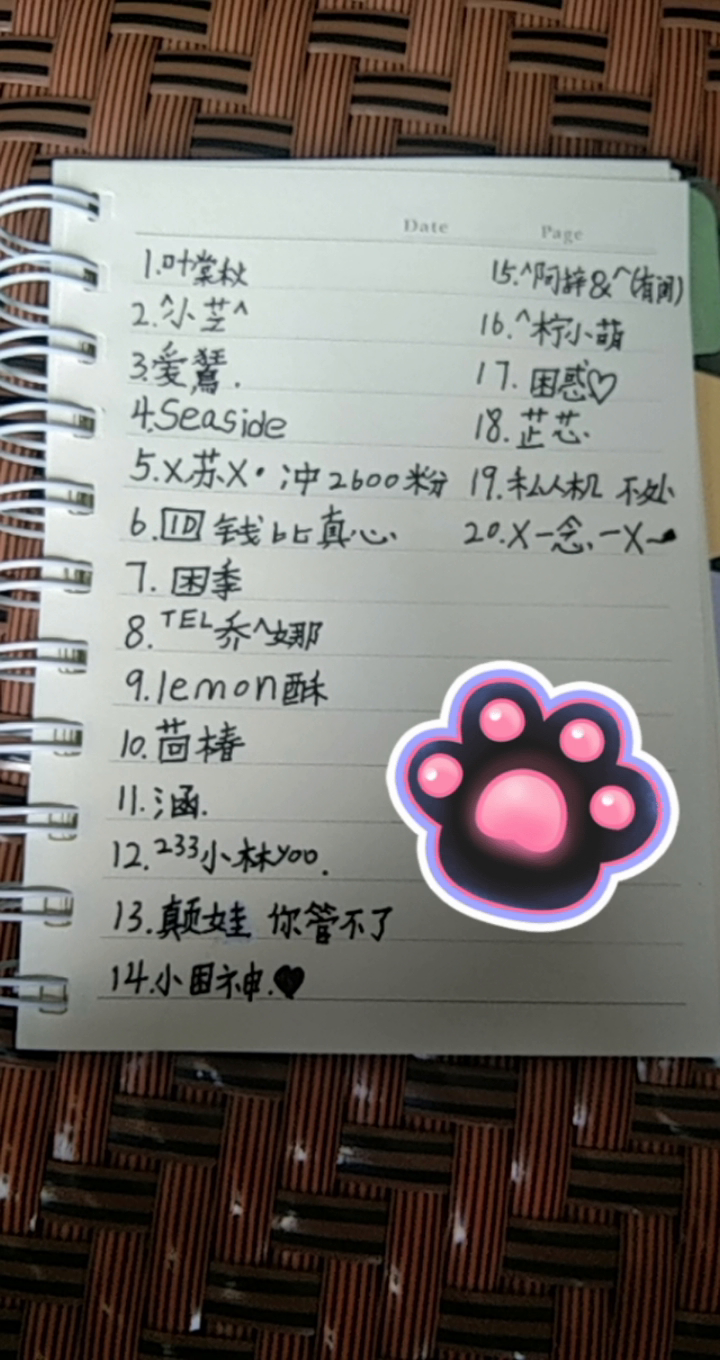 Date Page
1.叶棠秋
2.^小芝^
3.爱鸶.
4.Seaside
5.X苏X·冲2600粉
6.ID 钱比真心.
7.困季
8.TEL乔^娜
9.lemon酥
10.茴椿
11.涵.
12.233小林yoo.
13.颠娃 你管不了
14.小困神.♥
15.^阿辞&^(有闭)
16.^柠小萌
17.困惑♡
18.芷芯.
19.私人机 不处
20.X一念、一X